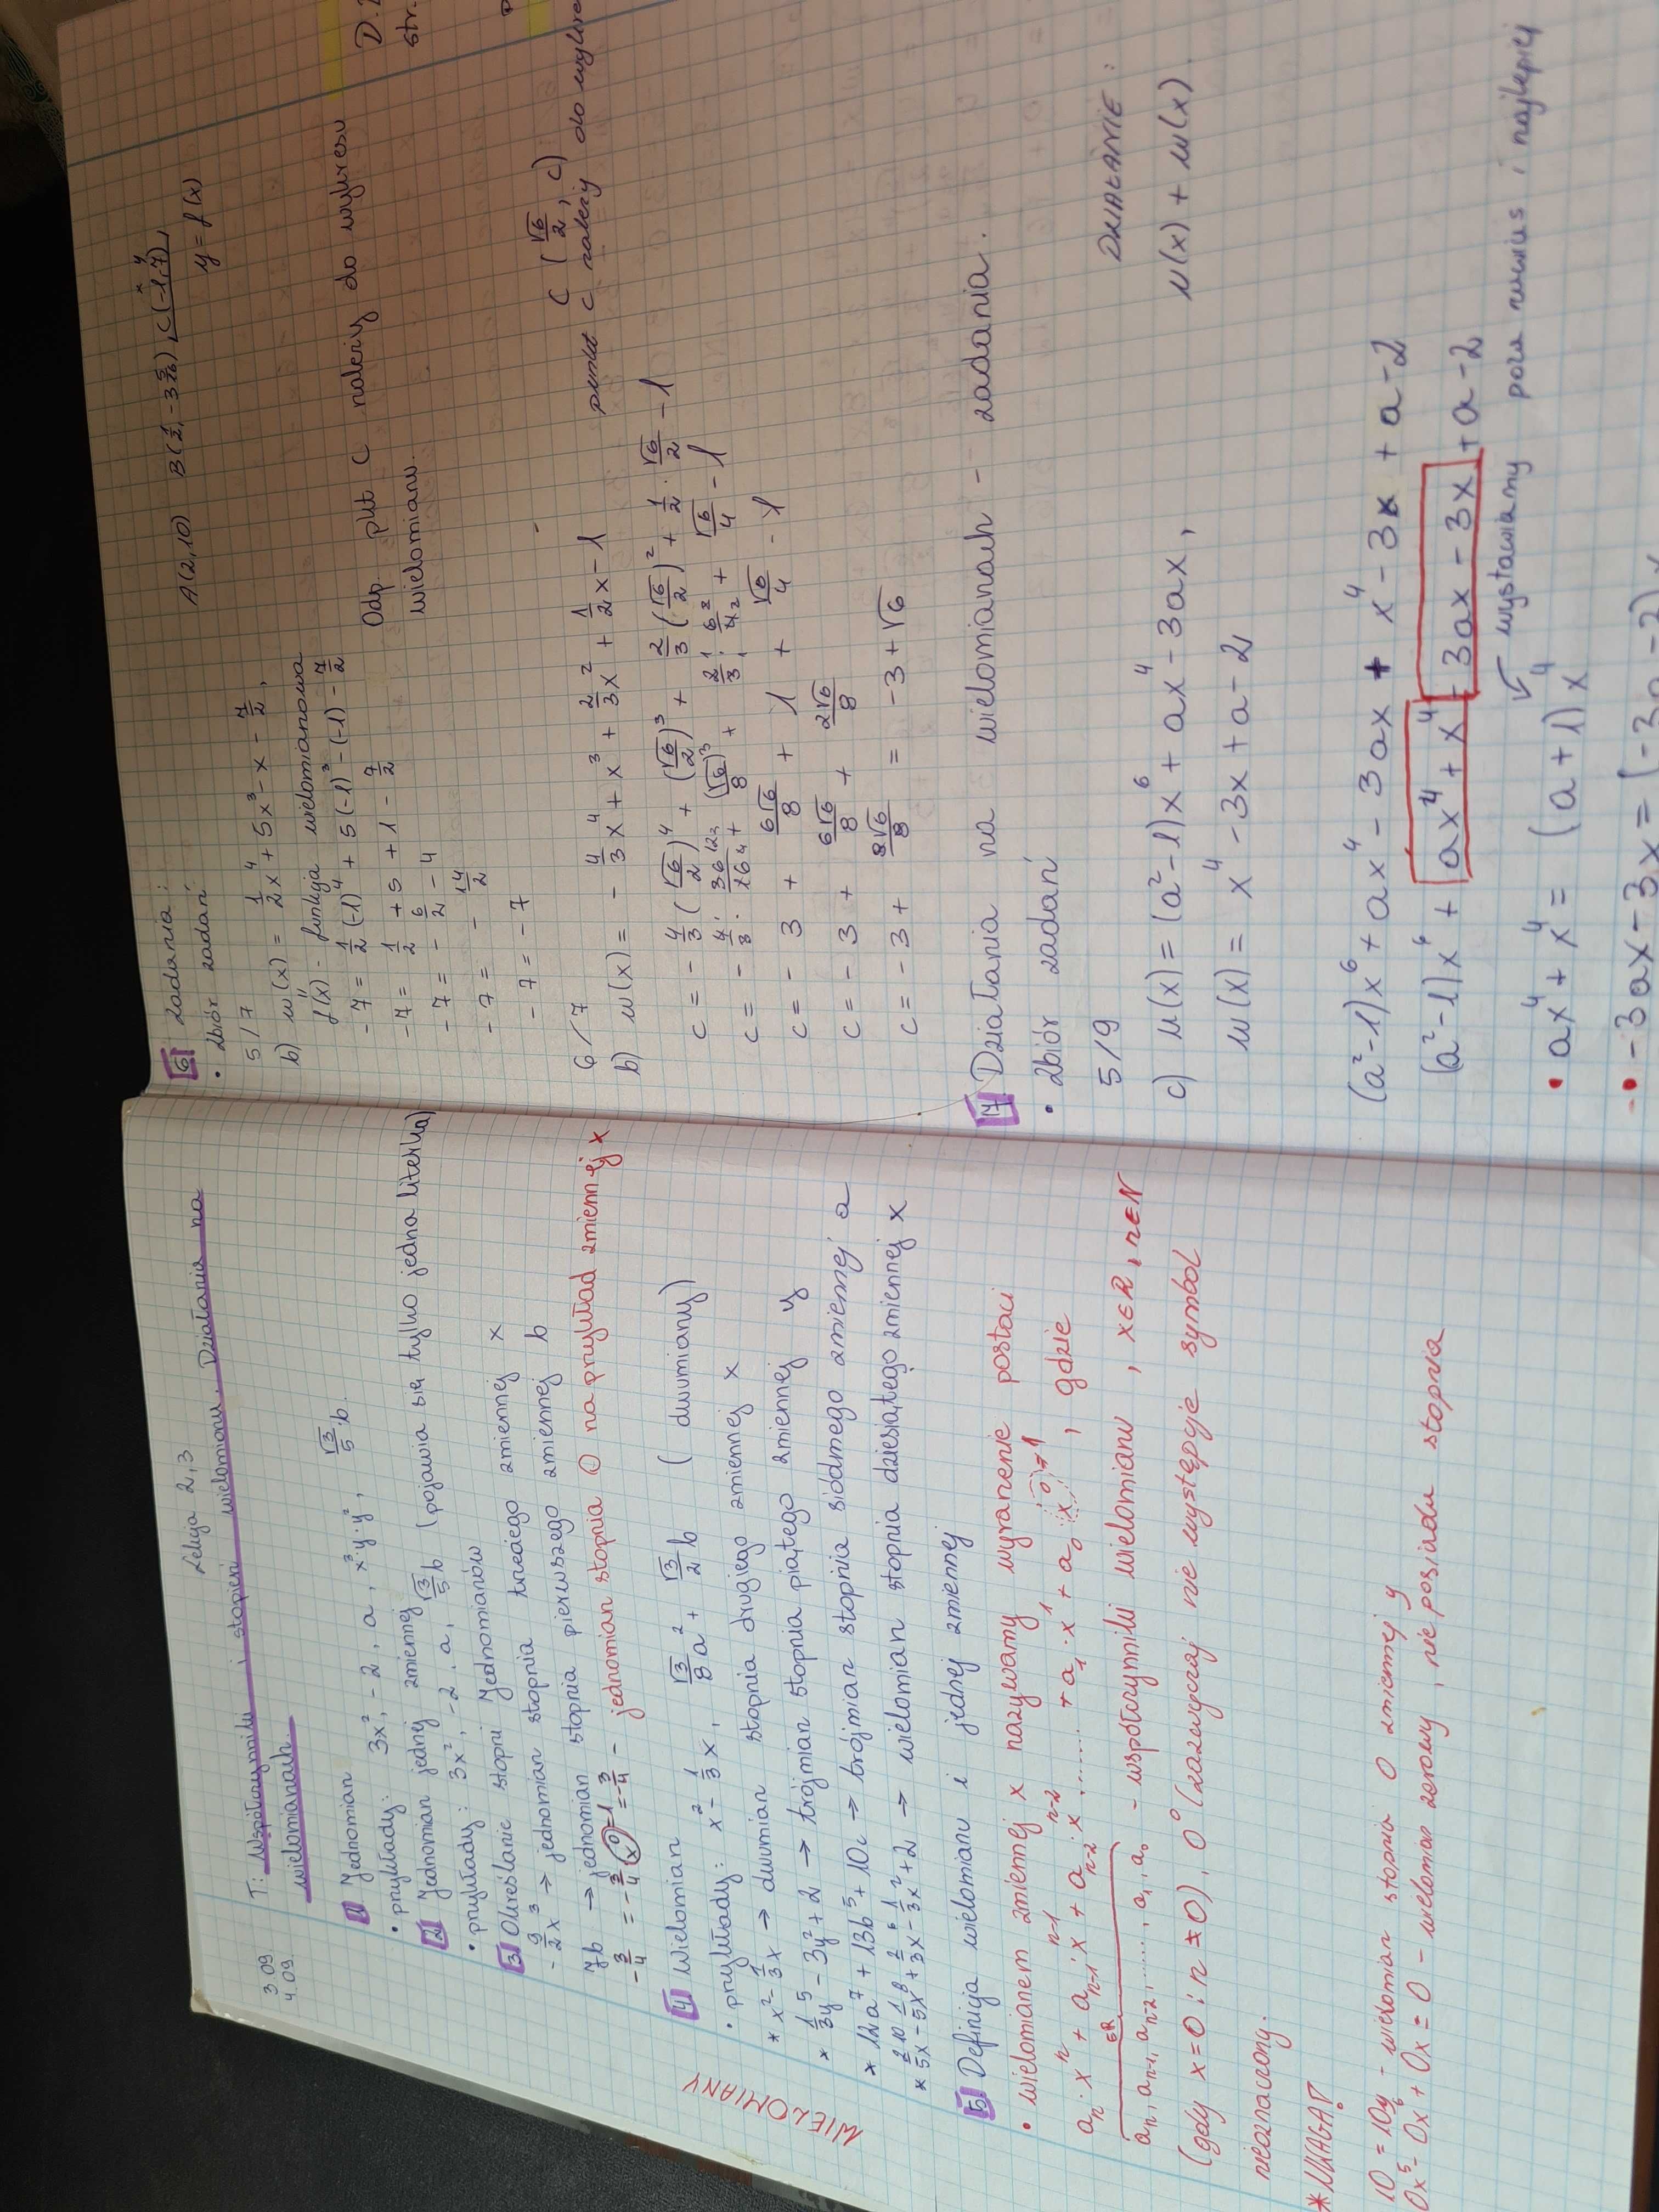 Lekcja 2,3
3.09
4.09.
T: Współczynniki i stopień wielomianu. Działania na
wielomianach.
1 Jednomian
• przykłady: 3x², -2, a, x³·y·y², √3/5·b.
2 Jednomian jednej zmiennej (pojawia się tylko jedna literka)
• przykłady: 3x², -2, a, √3/5 b
3 Określanie stopni jednomianów
-9/2x³ → jednomian stopnia trzeciego zmiennej x
7b → jednomian stopnia pierwszego zmiennej b
-3/4 = -3/4·x⁰=1 = -3/4 - jednomian stopnia 0 na przykład zmiennej x
4 Wielomian
• przykłady: x² - 1/3x, √3/8a² + √3/2b (dwumiany)
* x² - 1/3x → dwumian stopnia drugiego zmiennej x
* 1/3y⁵ - 3y² + 2 → trójmian stopnia piątego zmiennej y
* 12a⁷ + 13b⁵ + 10c → trójmian stopnia siódmego zmiennej a
* 2/5x¹⁰ - 1/5x⁸ + 2/3x⁶ - 1/3x² + 2 → wielomian stopnia dziesiątego zmiennej x
WIELOMIANY
5 Definicja wielomianu i jednej zmiennej
• wielomianem zmiennej x nazywamy wyrażenie postaci
aₙ·xⁿ + aₙ₋₁·xⁿ⁻¹ + aₙ₋₂·xⁿ⁻² ........ + a₁·x¹ + a₀·x⁰→1, gdzie
∈R
aₙ, aₙ₋₁, aₙ₋₂, ......, a₁, a₀ - współczynniki wielomianu, x∈R, n∈N
(gdy x=0 i n=0), 0⁰ (zazwyczaj nie występuje symbol
nieoznaczony.
*UWAGA!
10 = 10y⁰ - wielomian stopnia 0 zmiennej y
0x⁵ - 0x⁶ + 0x = 0 - wielomian zerowy, nie posiada stopnia
6 zadania:
• zbiór zadań
5/7 A(2,10) B(1/2, -3 5/26), C(-1,7),
x y
b) w(x) = 1/2x⁴ + 5x³ - x - 7/2, y = f(x)
"
f(x) - funkcja wielomianowa
-7 = 1/2(-1)⁴ + 5(-1)³ - (-1) - 7/2
-7 = 1/2 + 5 + 1 - 7/2
-7 = -6/2 - 4
-7 = -14/2
-7 = -7
Odp. pkt C należy do wykresu
wielomianu.
6/7 C (√6/2, c)
b) w(x) = -4/3x⁴ + x³ + 2/3x² + 1/2x - 1 punkt C należy do wykre
c = -4/3(√6/2)⁴ + (√6/2)³ + 2/3(√6/2)² + 1/2·√6/2 - 1
c = -4/3·36/16 + (√6)³/8 + 2/3·6/4 + √6/4 - 1
c = -3 + 6√6/8 + 1 + √6/4 - 1
c = -3 + 6√6/8 + 2√6/8
c = -3 + 8√6/8 = -3 + √6
7 Działania na wielomianach - zadania.
• zbiór zadań
5/9 DZIAŁANIE:
c) u(x) = (a²-1)x⁶ + ax⁴ - 3ax, u(x) + w(x).
w(x) = x⁴ - 3x + a - 2
(a²-1)x⁶ + ax⁴ - 3ax + x⁴ - 3x + a - 2
(a²-1)x⁶ + ax⁴ + x⁴ - 3ax - 3x + a - 2
wystawiamy poza nawias i najlepiej
• ax⁴ + x⁴ = (a+1)x⁴
• -3ax - 3x = (-3a -
D.
str.